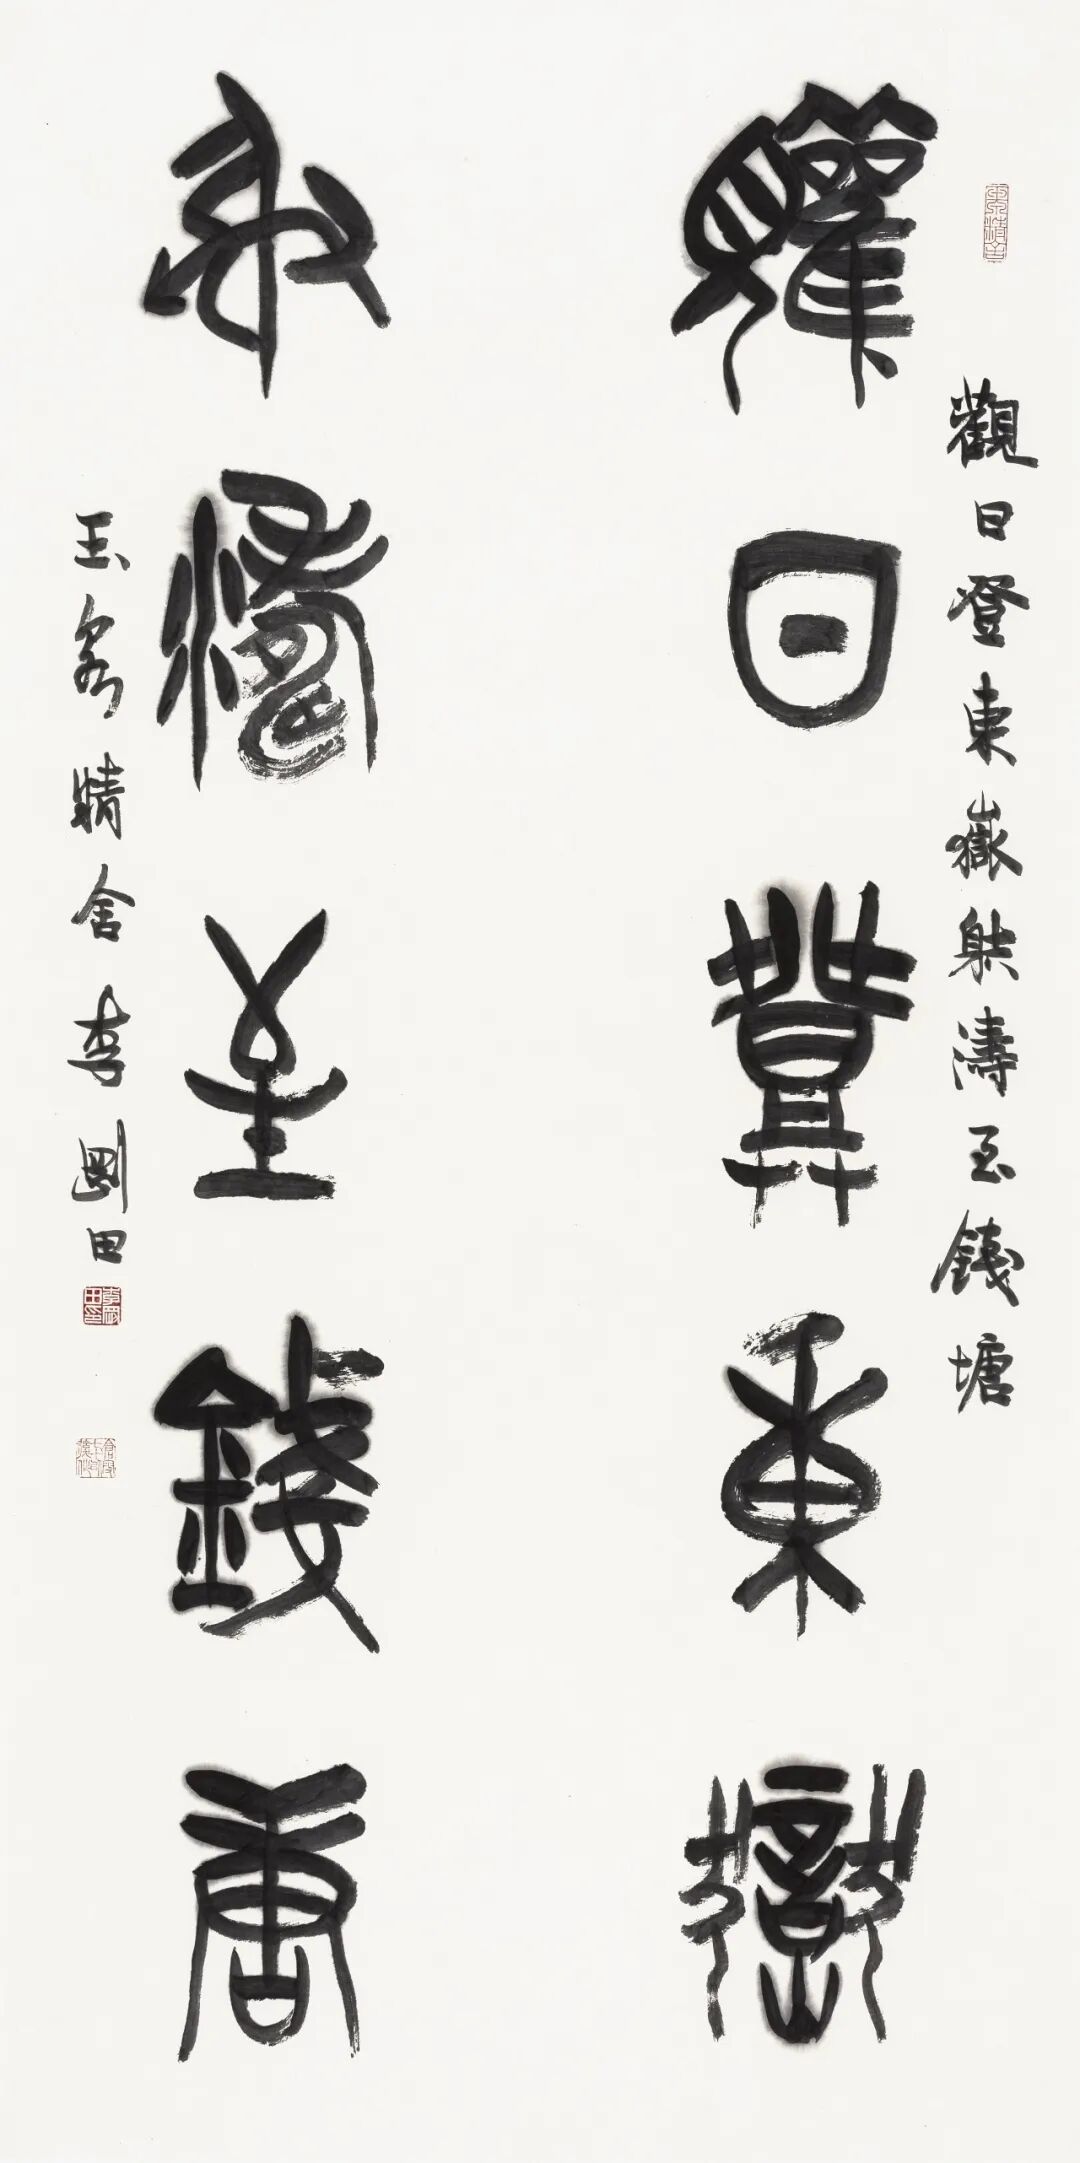 觀日登東嶽
射濤至錢唐
觀日登東嶽射濤至錢塘
玉泉精舍李剛田